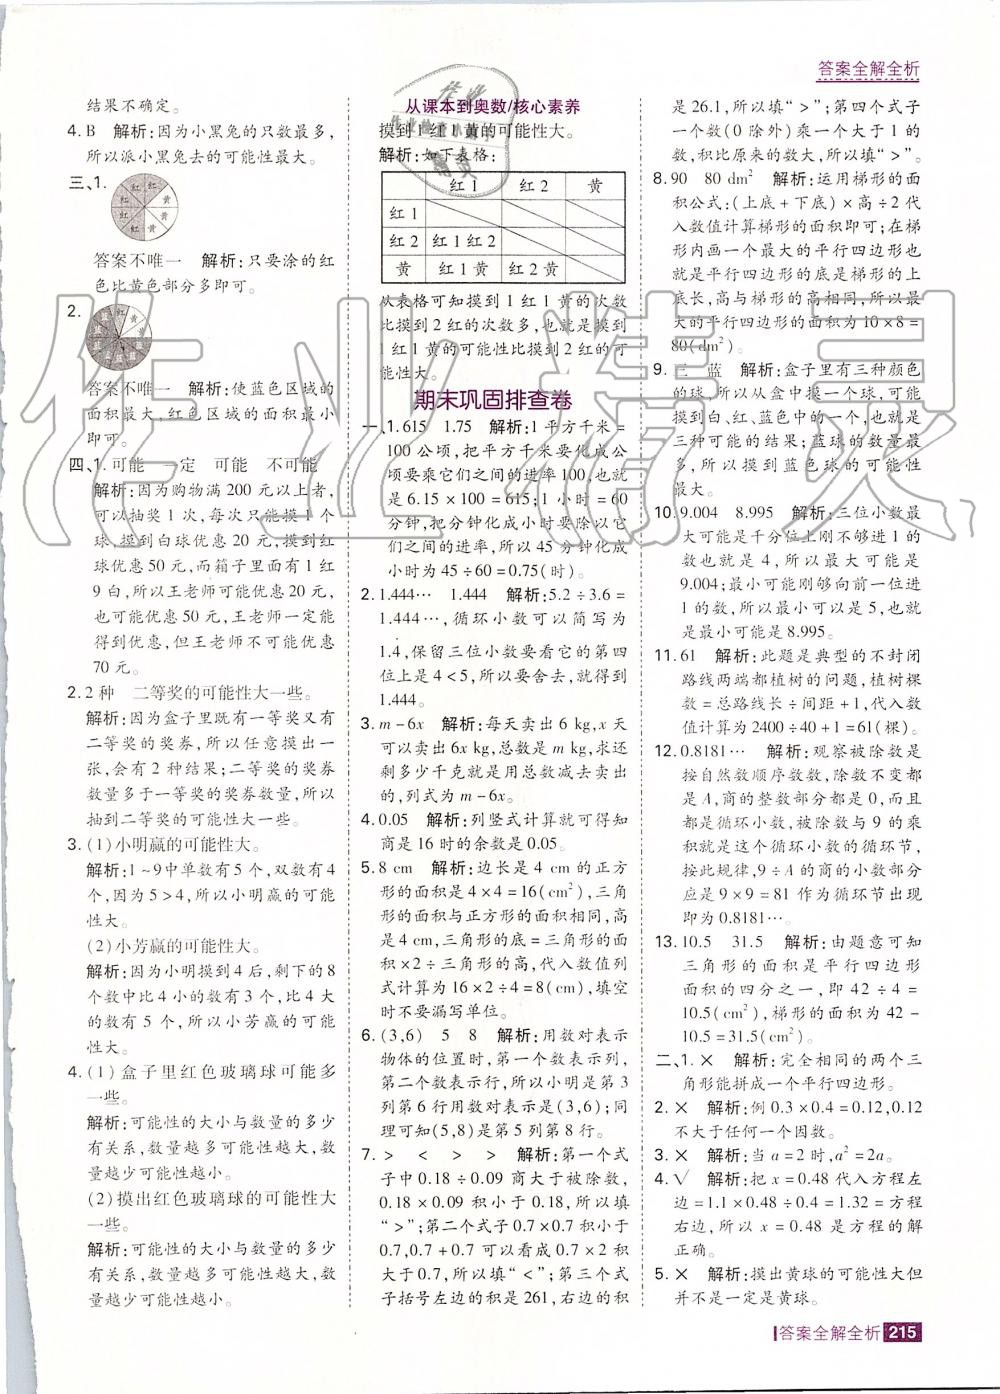 答案全解全析
结果不确定。
4. B　解析:因为小黑兔的只数最多,
所以派小黑兔去的可能性最大。
三、1.
红 红 红 红 红 红 黄 黄
答案不唯一　解析:只要涂的红
色比黄色部分多即可。
2.
答案不唯一　解析:使蓝色区域的
面积最大,红色区域的面积最小
即可。
四、1. 可能　一定　可能　不可能
解析:因为购物满 200 元以上者,
可以抽奖 1 次,每次只能摸 1 个
球,摸到白球优惠 20 元,摸到红
球优惠 50 元,而箱子里面有 1 红
9 白,所以王老师可能优惠 20 元,
也可能优惠 50 元,王老师一定能
得到优惠,但王老师不可能优惠
70 元。
2. 2 种　二等奖的可能性大一些。
解析:因为盒子里既有一等奖又有
二等奖的奖券,所以任意摸出一
张,会有 2 种结果;二等奖的奖券
数量多于一等奖的奖券数量,所以
抽到二等奖的可能性大一些。
3. (1)小明赢的可能性大。
解析:1~9中单数有 5 个,双数有 4
个,因为 5>4,所以小明赢的可能
性大。
(2)小芳赢的可能性大。
解析:因为小明摸到 4 后,剩下的 8
个数中比 4 小的数有 3 个,比 4 大
的数有 5 个,所以小芳赢的可能
性大。
4. (1)盒子里红色玻璃球可能多
一些。
解析:可能性的大小与数量的多少
有关系,数量越多可能性越大,数
量越少可能性越小。
(2)摸出红色玻璃球的可能性大
一些。
解析:可能性的大小与数量的多少
有关系,数量越多可能性越大,数
量越少可能性越小。
从课本到奥数/核心素养
摸到 1 红 1 黄的可能性大。
解析:如下表格:
红 1　红 2　黄
红 1
红 2　红 1 红 2
黄　红 1 黄　红 2 黄
从表格可知摸到 1 红 1 黄的次数
比摸到 2 红的次数多,也就是摸到
1 红 1 黄的可能性比摸到 2 红的可
能性大。
期末巩固排查卷
一、1. 615　1.75　解析:1 平方千米=
100 公顷,把平方千米要化成公
顷要乘它们之间的进率 100,也就
是 6.15×100=615;1 小时=60
分钟,把分钟化成小时要除以它
们之间的进率,所以 45 分钟化成
小时为 45÷60=0.75(时)。
2. 1.444…　1.444　解析:5.2÷3.6=
1.444…,循环小数可以简写为
1.4̇,保留三位小数要看它的第四
位上是 4<5,所以要舍去,就得到
1.444。
3. m-6x　解析:每天卖出 6 kg,x 天
可以卖出 6x kg,总数是 m,求还
剩多少千克就是用总数减去卖出
的,列式为 m-6x。
4. 0.05　解析:列竖式计算就可得知
商是 16 时的余数是 0.05。
5. 8 cm　解析:边长是 4 cm 的正方
形的面积是 4×4=16(cm²),三角
形的面积与正方形的面积相同,高
是 4 cm,三角形的底=三角形的面
积×2÷三角形的高,代入数值列
式计算为 16×2÷4=8(cm),填空
时不要漏写单位。
6. (3,6)　5　8　解析:用数对表示
物体的位置时,第一个数表示列,
第二个数表示行,所以小明是第 3
列第 6 行用数对表示是(3,6);同
理可知(5,8)是第 5 列第 8 行。
7. >　<　>　>　解析:第一个式
子中 0.18÷0.09 商大于被除数,
0.18×0.09 积小于 0.18,所以填
“>”;第二个式子 0.7×0.7 积小于
0.7,0.7+0.7 可以看成 0.7×2 积
大于 0.7,所以填“<”;第三个式
子括号左边的积是 261,右边的积
是 26.1,所以填“>”;第四个式子
一个数(0 除外)乘一个大于 1 的
数,积比原来的数大,所以填“>”。
8. 90　80 dm²　解析:运用梯形的面
积公式:(上底+下底)×高÷2 代
入数值计算梯形的面积即可;在梯
形内画一个最大的平行四边形也
就是平行四边形的底是梯形的上
底长,高与梯形的高相同,所以最
大的平行四边形的面积为 10×8=
80(dm²)。
9. 三　蓝　解析:盒子里有三种颜色
的球,所以从盒中摸一个球,可能
摸到白、红、蓝色中的一个,也就是
三种可能的结果;蓝球的数量最
多,所以摸到蓝色球的可能性
最大。
10. 9.004　8.995　解析:三位小数最
大可能是千分位上刚不够进 1 的
数也就是 4,所以最大可能是
9.004;最小可能刚够向前一位进
1 的数,所以最小可以是 5,也就
是最小可能是 8.995。
11. 61　解析:此题是典型的不封闭
路线两端都植树的问题,植树棵
数=总路线长÷间距+1,代入数
值计算为 2400÷40+1=61(棵)。
12. 0.8181…　解析:观察被除数是
按自然数顺序数数,除数不变都
是 A,商的整数部分都是 0,而且
都是循环小数,被除数与 9 的乘
积就是这个循环小数的循环节,
按此规律,9÷A 的商的小数部分
应是 9×9=81 作为循环节出现
即为 0.8181…。
13. 10.5　31.5　解析:由题意可知
三角形的面积是平行四边形
面积的四分之一,即 42÷4=
10.5(cm²),梯形的面积为 42-
10.5=31.5(cm²)。
二、1. ×　解析:完全相同的两个三
角形能拼成一个平行四边形。
2. ×　解析:例 0.3×0.4=0.12,0.12
不大于任何一个因数。
3. ×　解析:当 a=2 时,a²=2a。
4. √　解析:把 x=0.48 代入方程左
边=1.1×0.48÷0.4=1.32=方程
右边,所以 x=0.48 是方程的解
正确。
5. ×　解析:摸出黄球的可能性大但
并不是一定是黄球。
作业精灵
答案全解全析 215